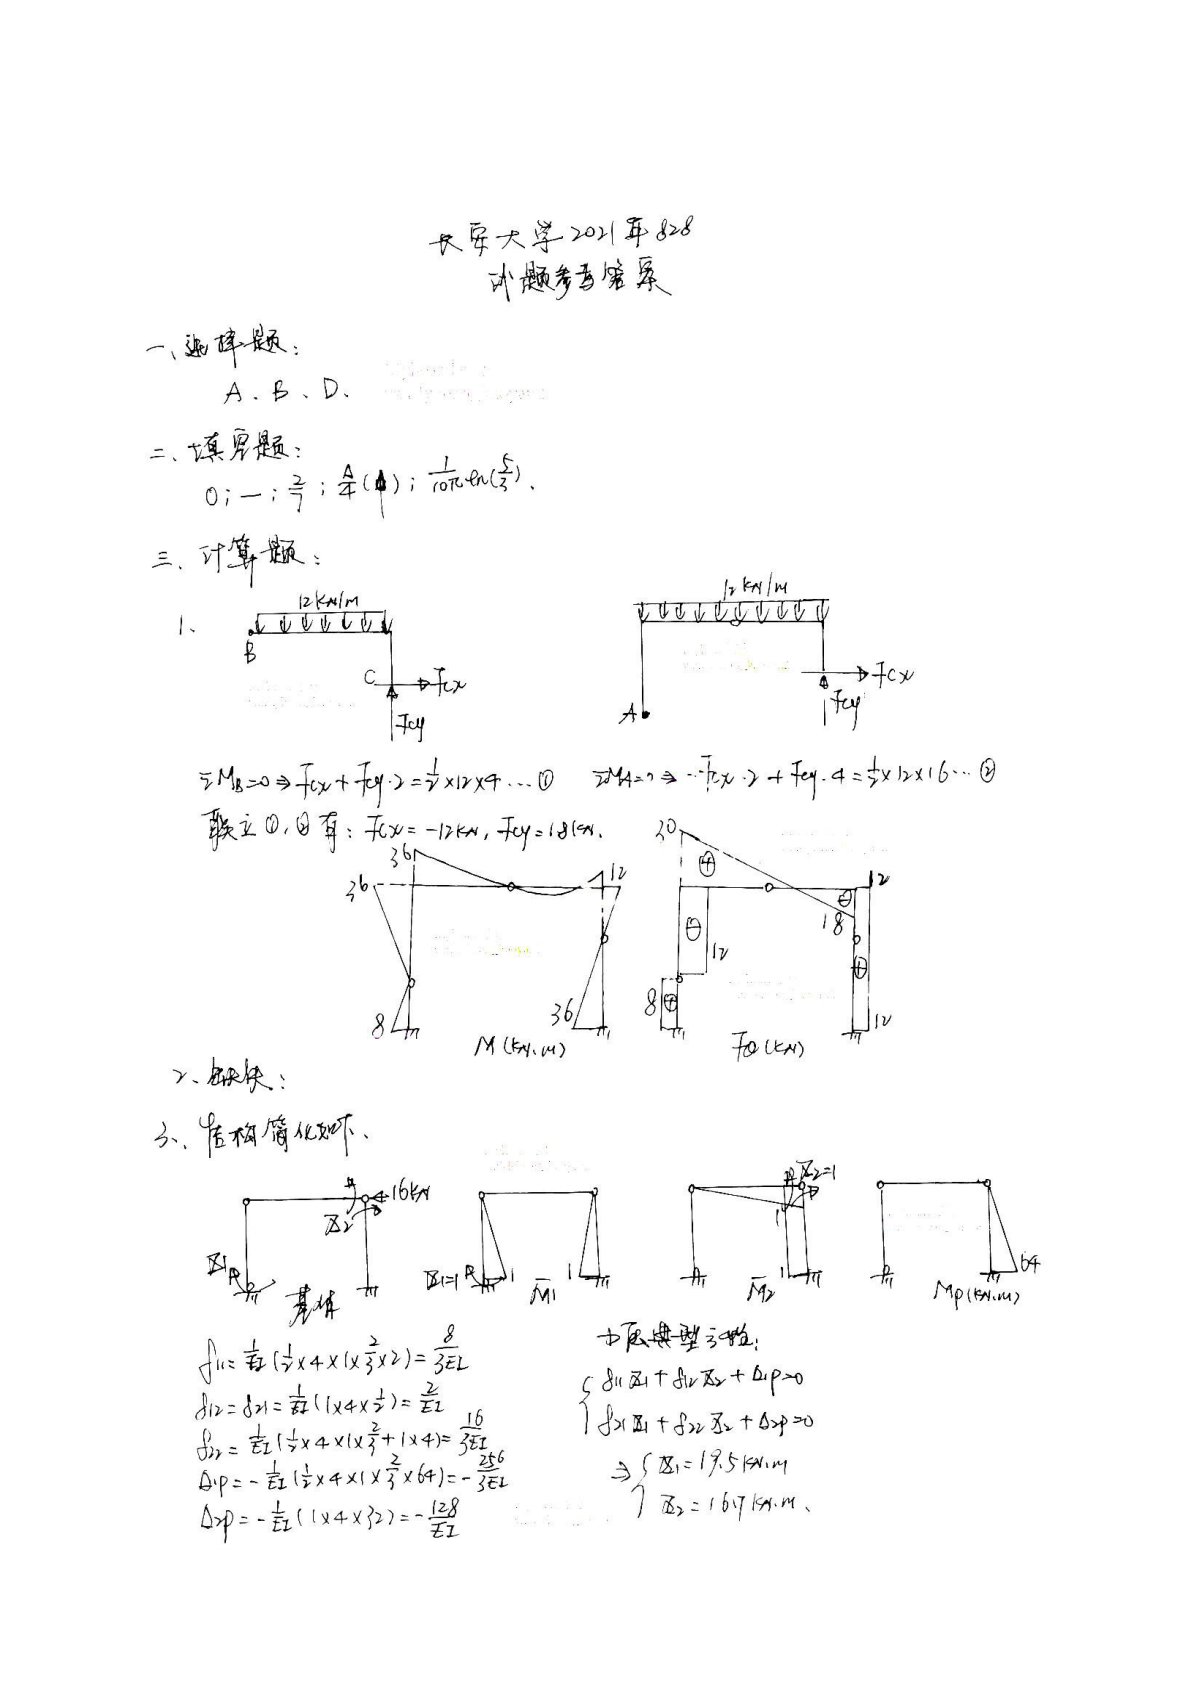 长安大学2021年828
试题参考答案
一、选择题：
A、B、D、
二、填空题：
0；一；2/7；A/4(↑)；1/10π ln(5/3)、
三、计算题：
1、
12KN/m
B
C
Fcx
Fcy
12KN/m
A
Fcx
Fcy
ΣMB=0⇒Fcx+Fcy·2=1/2×12×4…①
ΣMA=0⇒-Fcx·2+Fcy·4=1/2×12×16…②
联立①,②有：Fcx=-12KN, Fcy=18KN.
36
36
12
8
36
M(KN.m)
30
⊕
⊖
12
8
⊕
⊖
18
12
⊕
12
FQ(KN)
2、缺失：
3、结构简化如下、
16KN
Z2
Z1
基体
Z1=1
1
1
M̄1
Z2=1
1
1
M̄2
64
Mp(KN.m)
δ11=1/EI(1/2×4×1×2/3×2)=8/3EI
δ12=δ21=1/EI(1×4×1/2)=2/EI
δ22=1/EI(1/2×4×1×2/3+1×4)=16/3EI
Δ1p=-1/EI(1/2×4×1×2/3×64)=-256/3EI
Δ2p=-1/EI(1×4×32)=-128/EI
力法典型方程：
δ11Z1+δ12Z2+Δ1p=0
δ21Z1+δ22Z2+Δ2p=0
⇒ Z1=19.5KN.m
Z2=16.7KN.m、